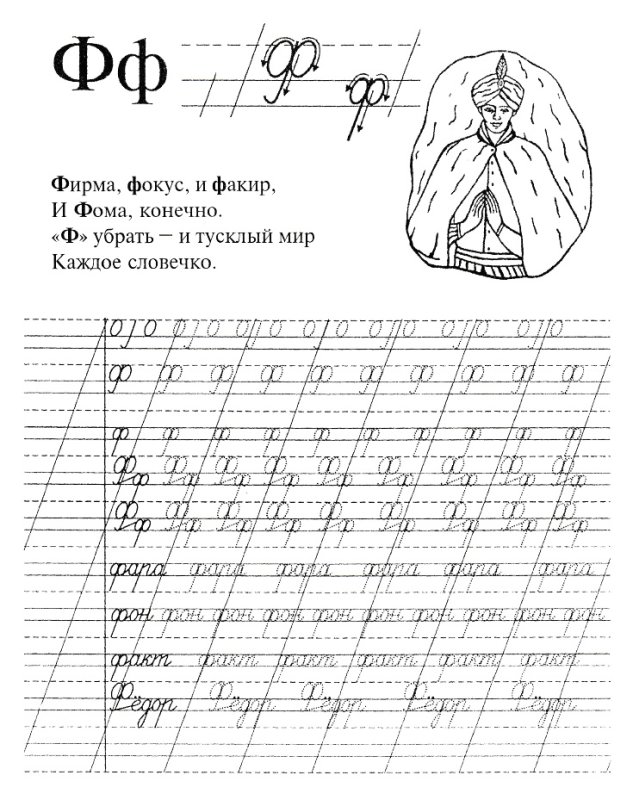 Фф ф ф
Фирма, фокус, и факир,
И Фома, конечно.
«Ф» убрать – и тусклый мир
Каждое словечко.
ф ф ф ф ф ф ф ф ф ф
ф ф ф ф ф ф ф ф ф ф
Фф Фф Фф Фф Фф Фф Фф Фф Фф
Фф Фф Фф Фф Фф Фф Фф Фф Фф
фара фара фара фара фара фара
фон фон фон фон фон фон фон фон фон фон
факт факт факт факт факт факт
Фёдор Фёдор Фёдор Фёдор Фёдор